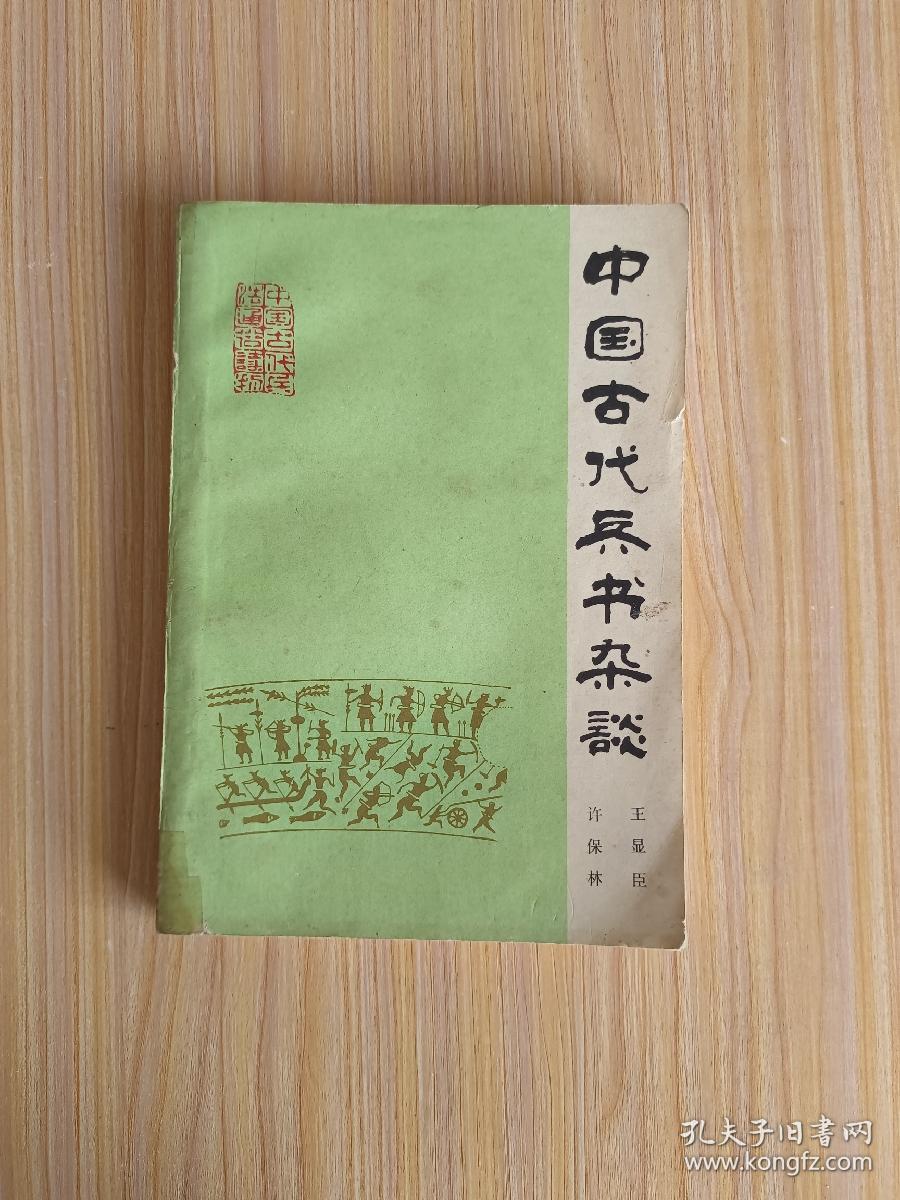 中国古代兵书杂談
王显臣
许保林
中国古代兵
法通俗讀物
孔夫子旧书网
www.kongfz.com